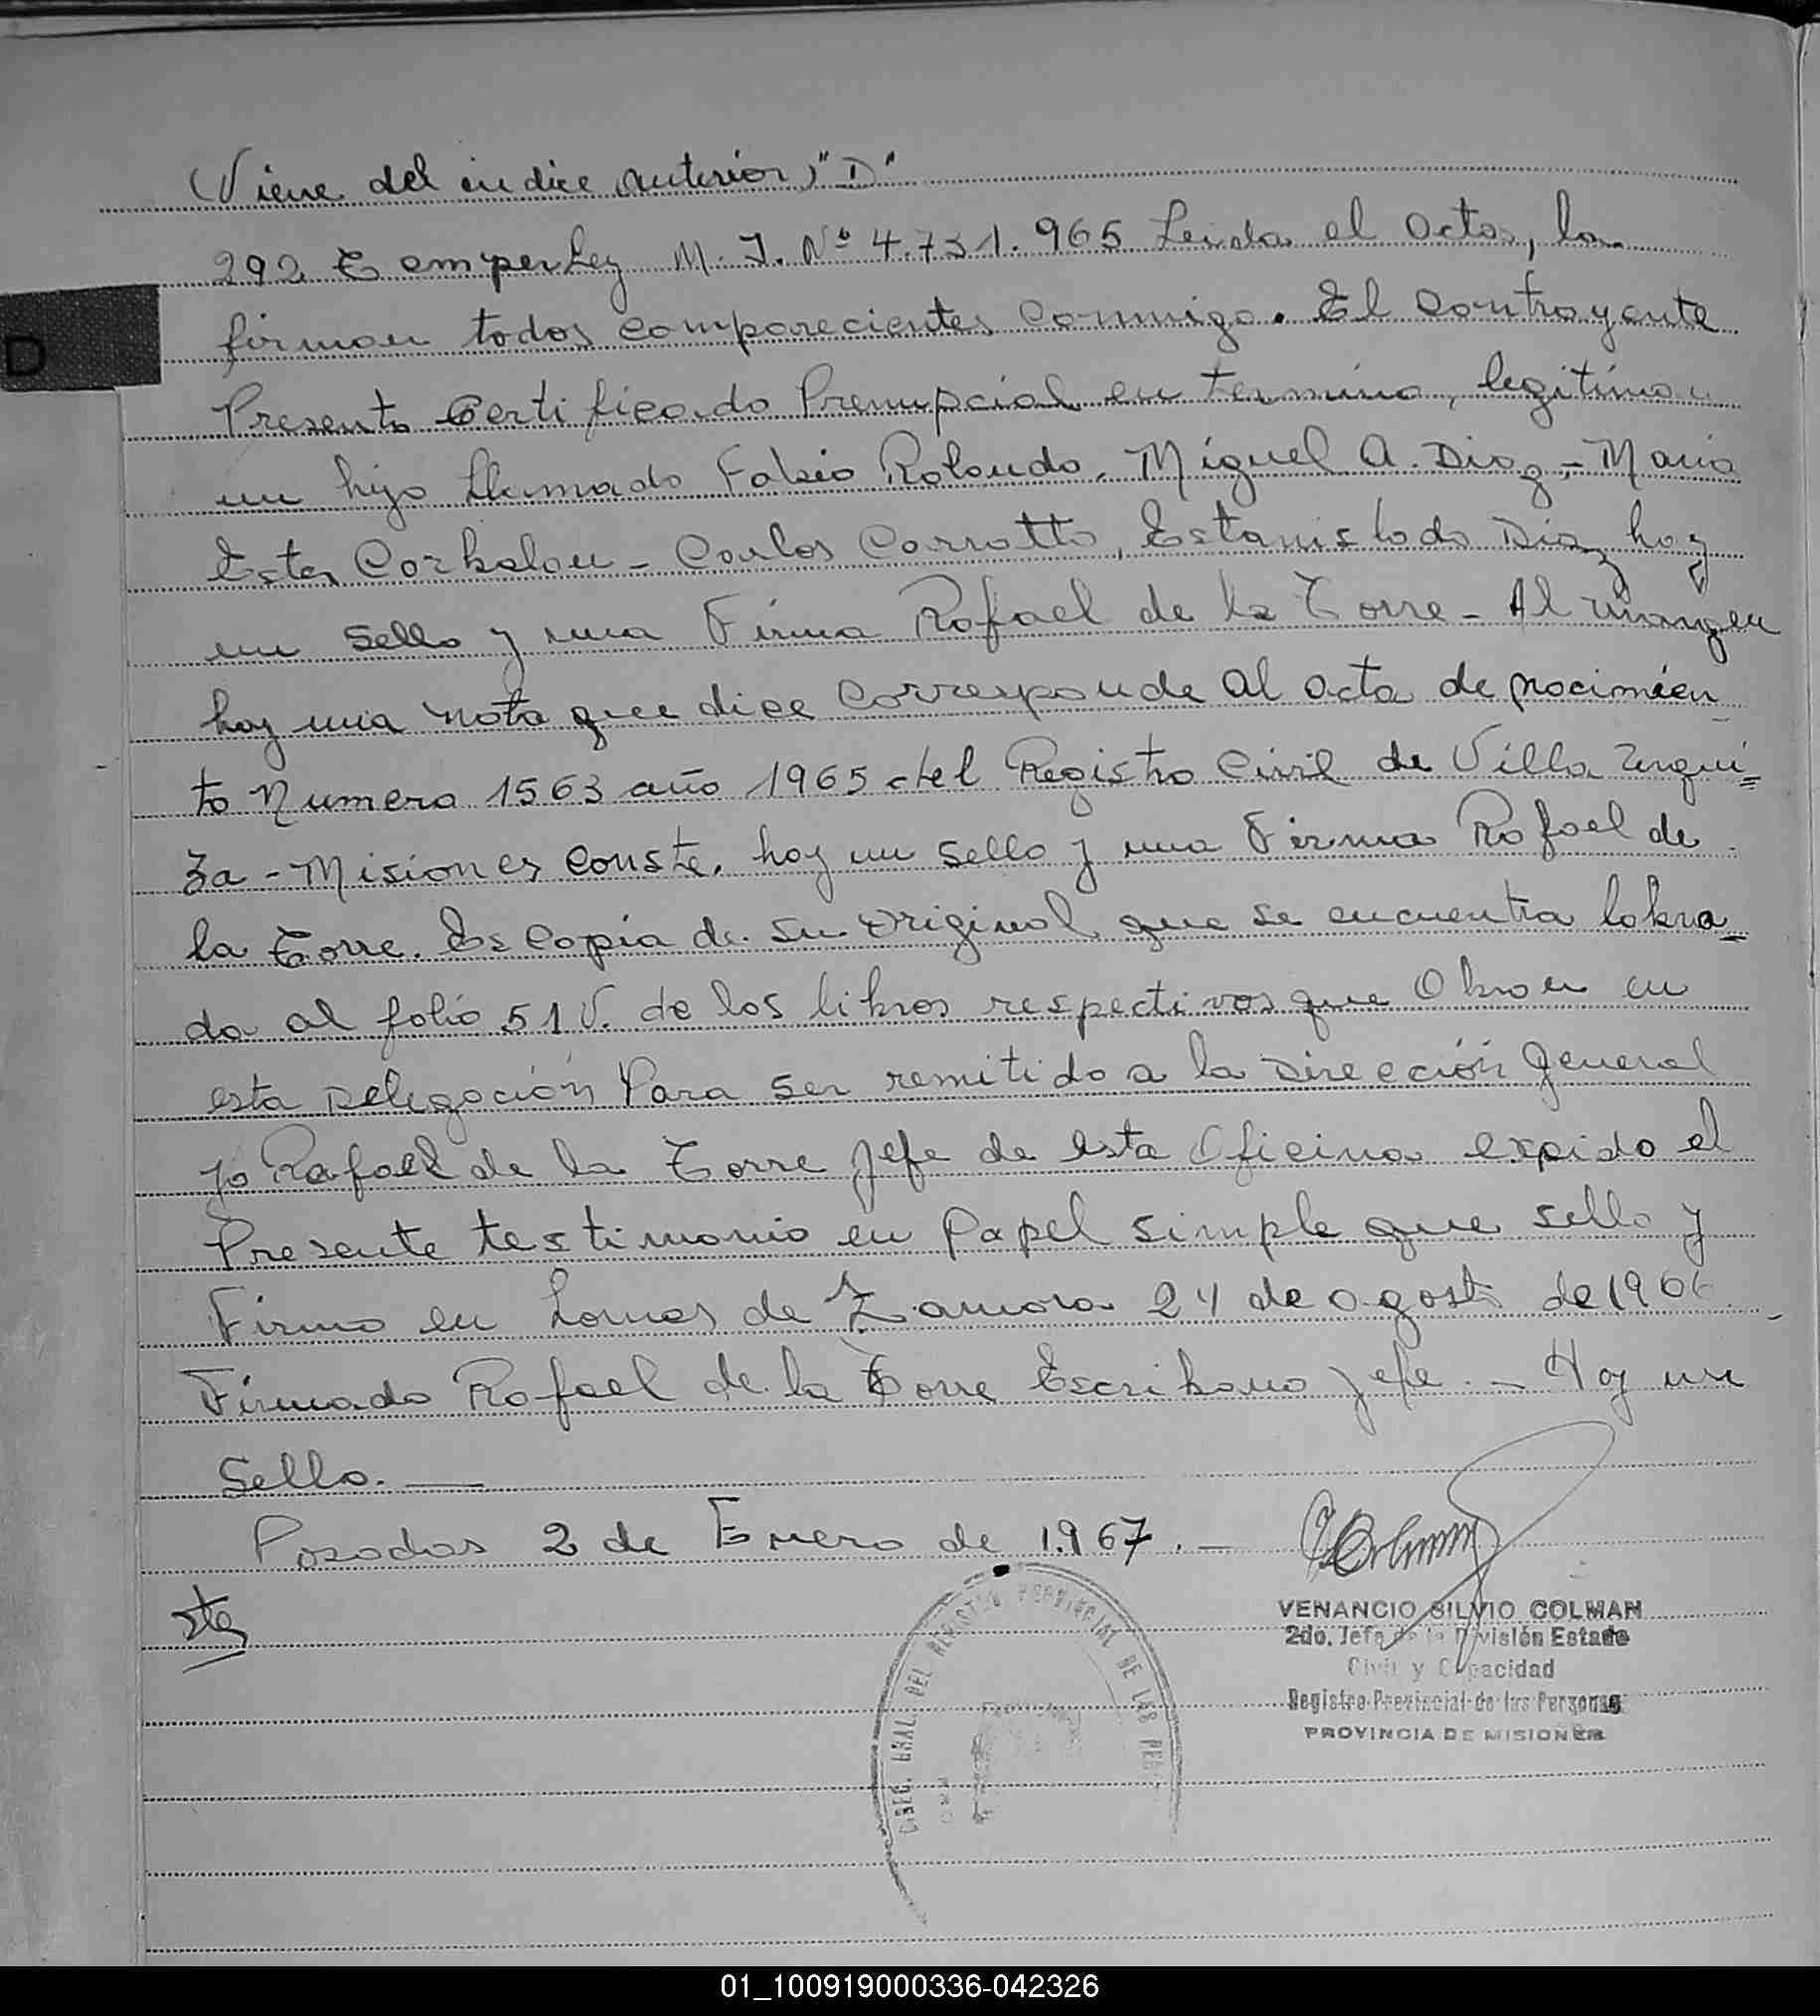 (Viene del indice anterior) "D"
292 Temperley M. I. Nº 4.731.965 Leida el acta, la
D
firman todos comparecientes conmigo. El contrayente
Presento Certificado Prenupcial en termino, legitiman
un hijo llamado Fabio Rolando. Miguel A. Diaz - Maria
Ester Corbalan - Carlos Carratto, Estanislado Diaz hay
un sello y una Firma Rafael de la Torre - Al margen
hay una nota que dice Corresponde al acta de nacimien
to Numero 1563 año 1965 del Registro Civil de Villa Urqui=
za - Misiones conste. hay un sello y una Firma Rafael de
la Torre. Es copia de su original que se encuentra labra=
da al folio 51 V. de los libros respectivos que Obran en
esta Delegación Para ser remitido a la Dirección General
yo Rafael de la Torre Jefe de esta Oficina expido el
Presente testimonio en Papel simple que sello y
Firmo en Lomas de Zamora 24 de agosto de 1966.
Firmado Rafael de la Torre Escribano Jefe. - Hay un
Sello. —
Posadas 2 de Enero de 1.967. —
VENANCIO SILVIO COLMAN
2do. Jefe de la División Estado
Civil y Capacidad
Registro Provincial de las Personas
PROVINCIA DE MISIONES
DIREC. GRAL. DEL REGISTRO PROVINCIAL DE LAS PER
01_100919000336-042326